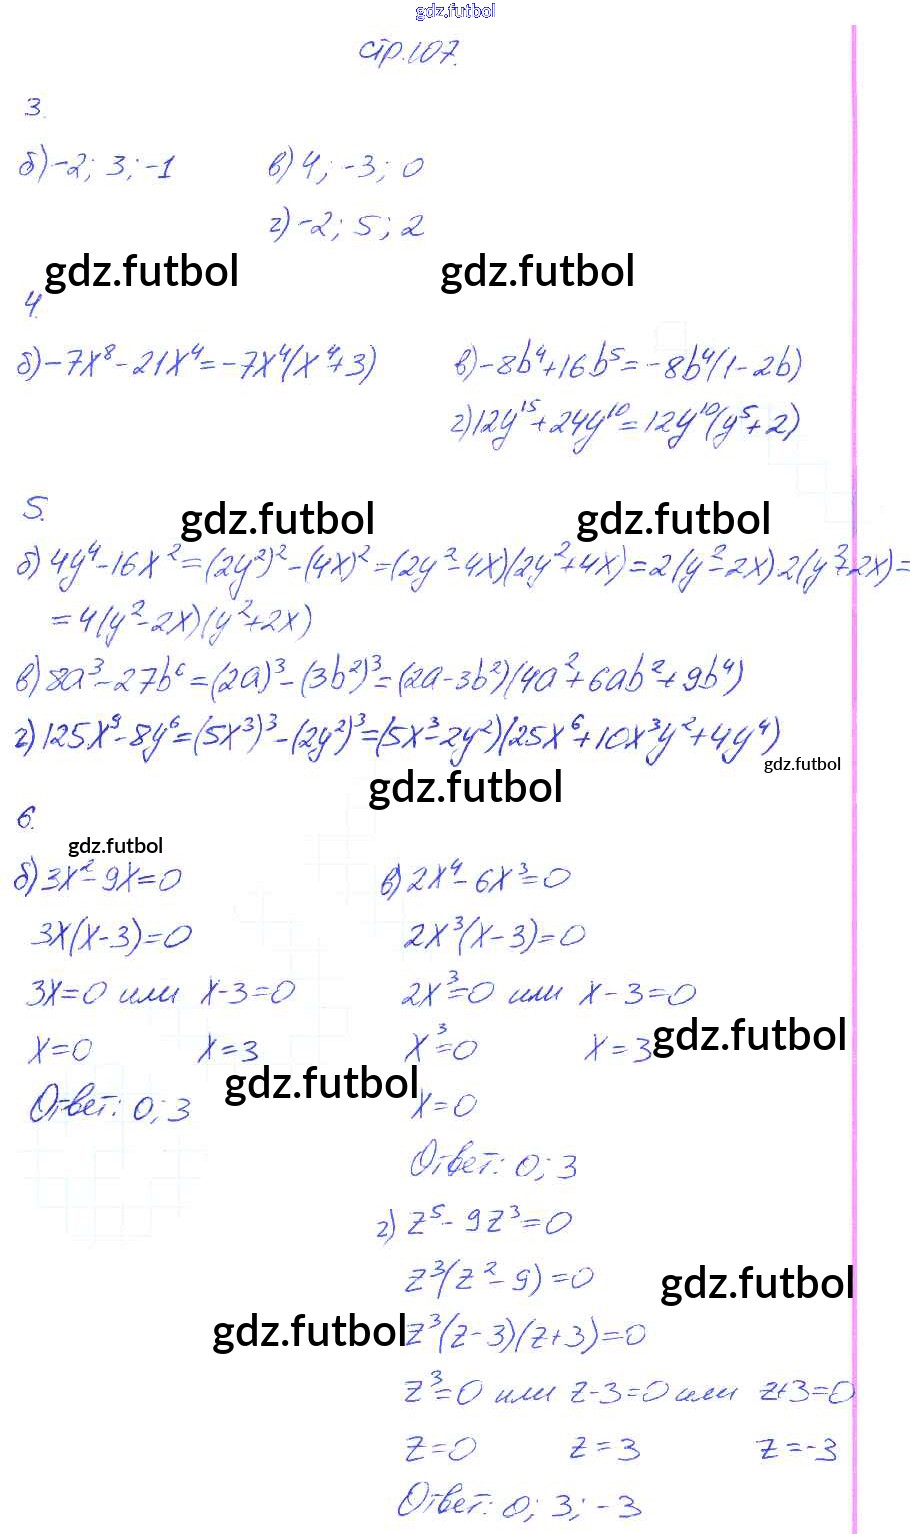 gdz.futbol
стр.107.
3.
б) -2; 3; -1 в) 4; -3; 0
г) -2; 5; 2
gdz.futbol gdz.futbol
4.
б) -7x⁸ - 21x⁴ = -7x⁴(x⁴+3) в) -8b⁴+16b⁵ = -8b⁴(1-2b)
г) 12y¹⁵ + 24y¹⁰ = 12y¹⁰(y⁵+2)
5.
gdz.futbol gdz.futbol
б) 4y⁴-16x² = (2y²)² - (4x)² = (2y²-4x)(2y²+4x) = 2(y²-2x)·2(y²+2x) =
= 4(y²-2x)(y²+2x)
в) 8a³-27b⁶ = (2a)³-(3b²)³ = (2a-3b²)(4a²+6ab²+9b⁴)
г) 125x⁹-8y⁶ = (5x³)³-(2y²)³ = (5x³-2y²)(25x⁶+10x³y²+4y⁴)
gdz.futbol
gdz.futbol
6.
gdz.futbol
б) 3x²-9x=0 в) 2x⁴-6x³=0
3x(x-3)=0 2x³(x-3)=0
3x=0 или x-3=0 2x³=0 или x-3=0
x=0 x=3 x³=0 x=3
gdz.futbol
gdz.futbol
Ответ: 0; 3 x=0
Ответ: 0; 3
г) z⁵-9z³=0
z³(z²-9)=0
gdz.futbol
gdz.futbol
z³(z-3)(z+3)=0
z³=0 или z-3=0 или z+3=0
z=0 z=3 z=-3
Ответ: 0; 3; -3